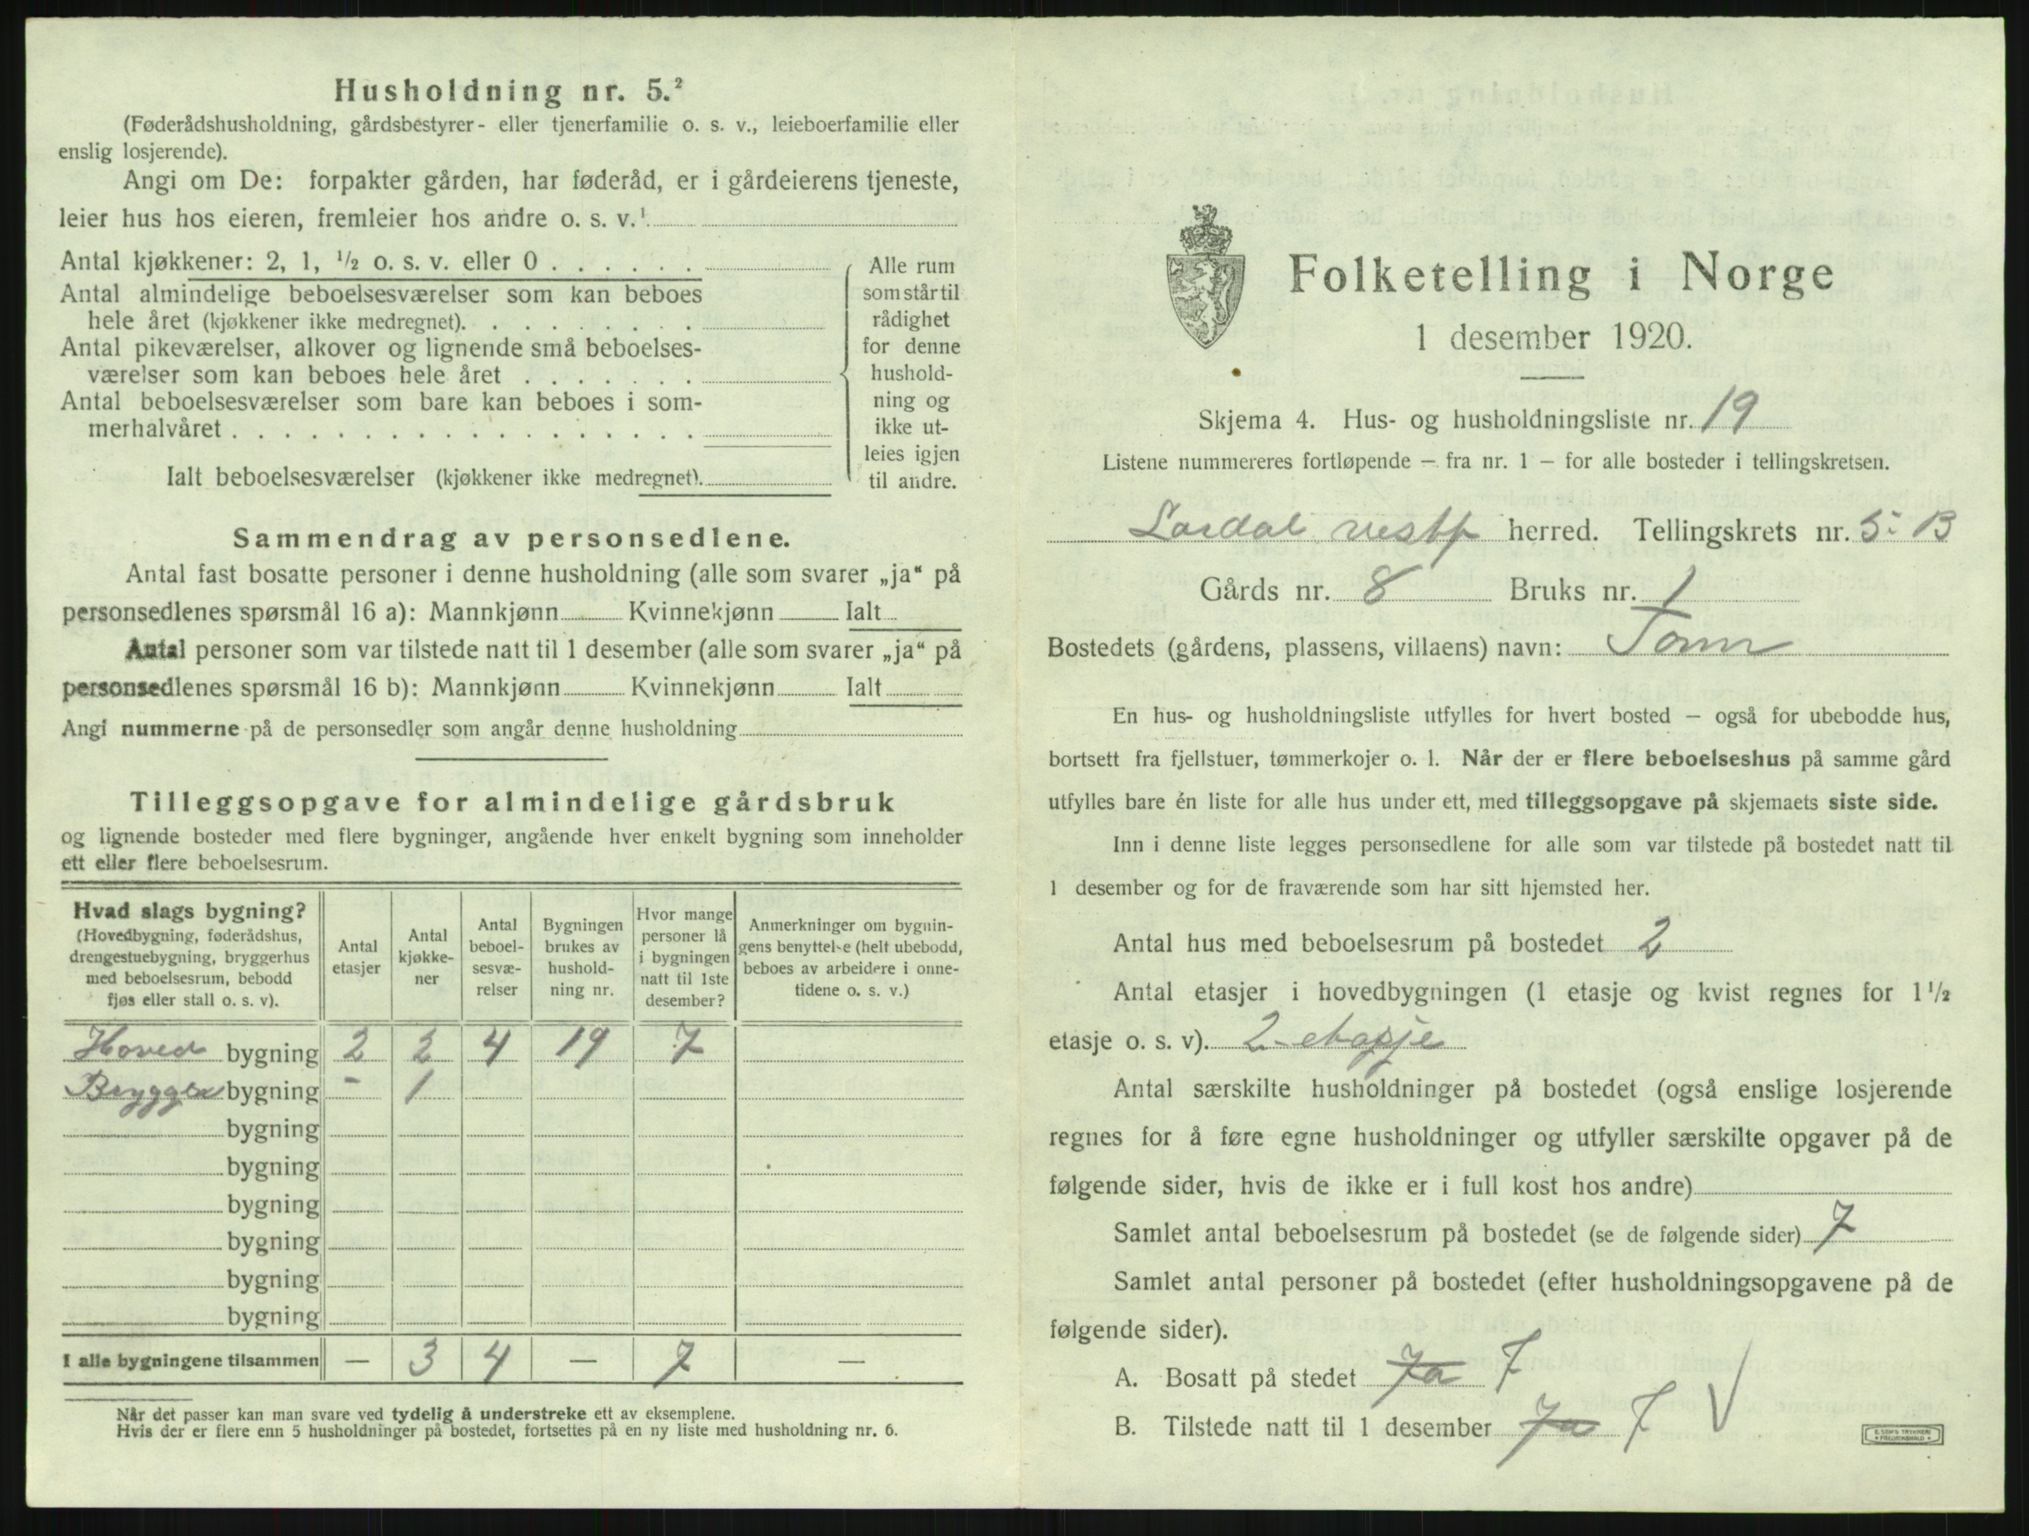 Husholdning nr. 5.²
(Føderådshusholdning, gårdsbestyrer- eller tjenerfamilie o. s. v., leieboerfamilie eller
enslig losjerende).
Angi om De: forpakter gården, har føderåd, er i gårdeierens tjeneste,
leier hus hos eieren, fremleier hos andre o. s. v.¹
Antal kjøkkener: 2, 1, ½ o. s. v. eller 0 . . . . . .
Antal almindelige beboelsesværelser som kan beboes
hele året (kjøkkener ikke medregnet). . . . . . . . .
Antal pikeværelser, alkover og lignende små beboelses-
værelser som kan beboes hele året . . . . . . .
Antal beboelsesværelser som bare kan beboes i som-
merhalvåret . . . . . . . . . . . . . . . . . .
Ialt beboelsesværelser (kjøkkener ikke medregnet).
Alle rum
som står til
rådighet
for denne
hushold-
ning og
ikke ut-
leies igjen
til andre.
Sammendrag av personsedlene.
Antal fast bosatte personer i denne husholdning (alle som svarer „ja“ på
personsedlenes spørsmål 16 a): Mannkjønn Kvinnekjønn Ialt
Antal personer som var tilstede natt til 1 desember (alle som svarer „ja“ på
personsedlenes spørsmål 16 b): Mannkjønn Kvinnekjønn Ialt
Angi nummerne på de personsedler som angår denne husholdning
Tilleggsopgave for almindelige gårdsbruk
og lignende bosteder med flere bygninger, angående hver enkelt bygning som inneholder
ett eller flere beboelsesrum.
Hvad slags bygning?
(Hovedbygning, føderådshus,
drengestuebygning, bryggerhus
med beboelsesrum, bebodd
fjøs eller stall o. s. v).
Antal
etasjer
Antal
kjøkke-
ner
Antal
beboel-
sesvæ-
relser
Bygningen
brukes av
hushold-
ning nr.
Hvor mange
personer lå
i bygningen
natt til 1ste
desember?
Anmerkninger om bygnin-
gens benyttelse (helt ubebodd,
beboes av arbeidere i onne-
tidene o. s. v.)
Hoved bygning 2 2 4 19 7
Brygger bygning - 1
bygning
bygning
bygning
bygning
bygning
bygning
I alle bygningene tilsammen — 3 4 — 7 —
Når det passer kan man svare ved tydelig å understreke ett av eksemplene.
Hvis der er flere enn 5 husholdninger på bostedet, fortsettes på en ny liste med husholdning nr. 6.
Folketelling i Norge
1 desember 1920.
Skjema 4. Hus- og husholdningsliste nr. 19
Listene nummereres fortløpende — fra nr. 1 — for alle bosteder i tellingskretsen.
Lardal vestf herred. Tellingskrets nr. 5: B
Gårds nr. 8 Bruks nr. 1
Bostedets (gårdens, plassens, villaens) navn: Tomr
En hus- og husholdningsliste utfylles for hvert bosted — også for ubebodde hus,
bortsett fra fjellstuer, tømmerkojer o. l. Når der er flere beboelseshus på samme gård
utfylles bare én liste for alle hus under ett, med tilleggsopgave på skjemaets siste side.
Inn i denne liste legges personsedlene for alle som var tilstede på bostedet natt til
1 desember og for de fraværende som har sitt hjemsted her.
Antal hus med beboelsesrum på bostedet 2
Antal etasjer i hovedbygningen (1 etasje og kvist regnes for 1½
etasje o. s. v). 2-etasje
Antal særskilte husholdninger på bostedet (også enslige losjerende
regnes for å føre egne husholdninger og utfyller særskilte opgaver på de
følgende sider, hvis de ikke er i full kost hos andre)
Samlet antal beboelsesrum på bostedet (se de følgende sider) 7
Samlet antal personer på bostedet (efter husholdningsopgavene på de
følgende sider).
A. Bosatt på stedet Ja 7
B. Tilstede natt til 1 desember Ja 7